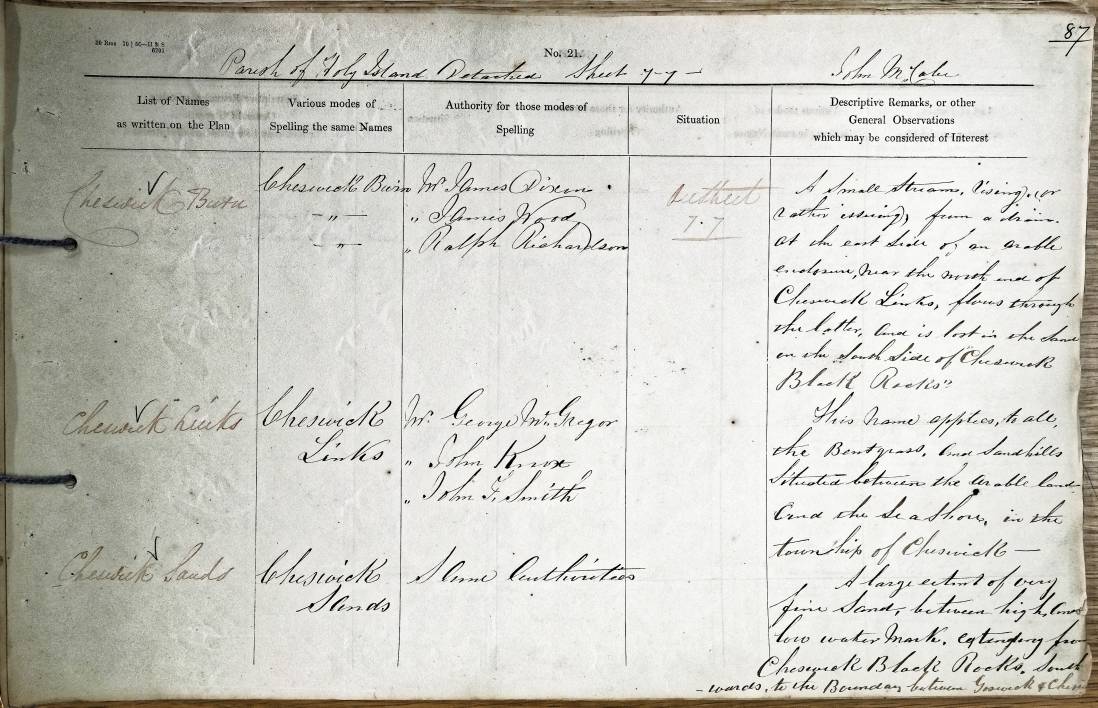 87
No. 21.
Parish of Holy Island Detached Sheet 7-7 —
John McCabe
List of Names
as written on the Plan
Various modes of
Spelling the same Names
Authority for those modes of
Spelling
Situation
Descriptive Remarks, or other
General Observations
which may be considered of Interest
Cheswick Burn
Cheswick Burn
— " —
— " —
Mr James Dixon
" James Wood
" Ralph Richardson
7.7
A Small Stream, rising, or
rather issuing, from a drain
at the east side of an arable
enclosure, near the north end of
Cheswick Links, flows through
the latter, and is lost in the Sand
on the South Side of "Cheswick
Black Rocks"
Cheswick Links
Cheswick
Links
Mr George McGregor
" John Knox
" John F. Smith
This name applies, to all,
the Bentgrass, and Sandhills
Situated between the arable land
and the Sea Shore, in the
township of Cheswick —
Cheswick Sands
Cheswick
Sands
Same Authorities
A large extent of very
fine Sand, between high, and
low water Mark, extending from
Cheswick Black Rocks, South
-wards, to the Boundary between Goswick & Cheswi